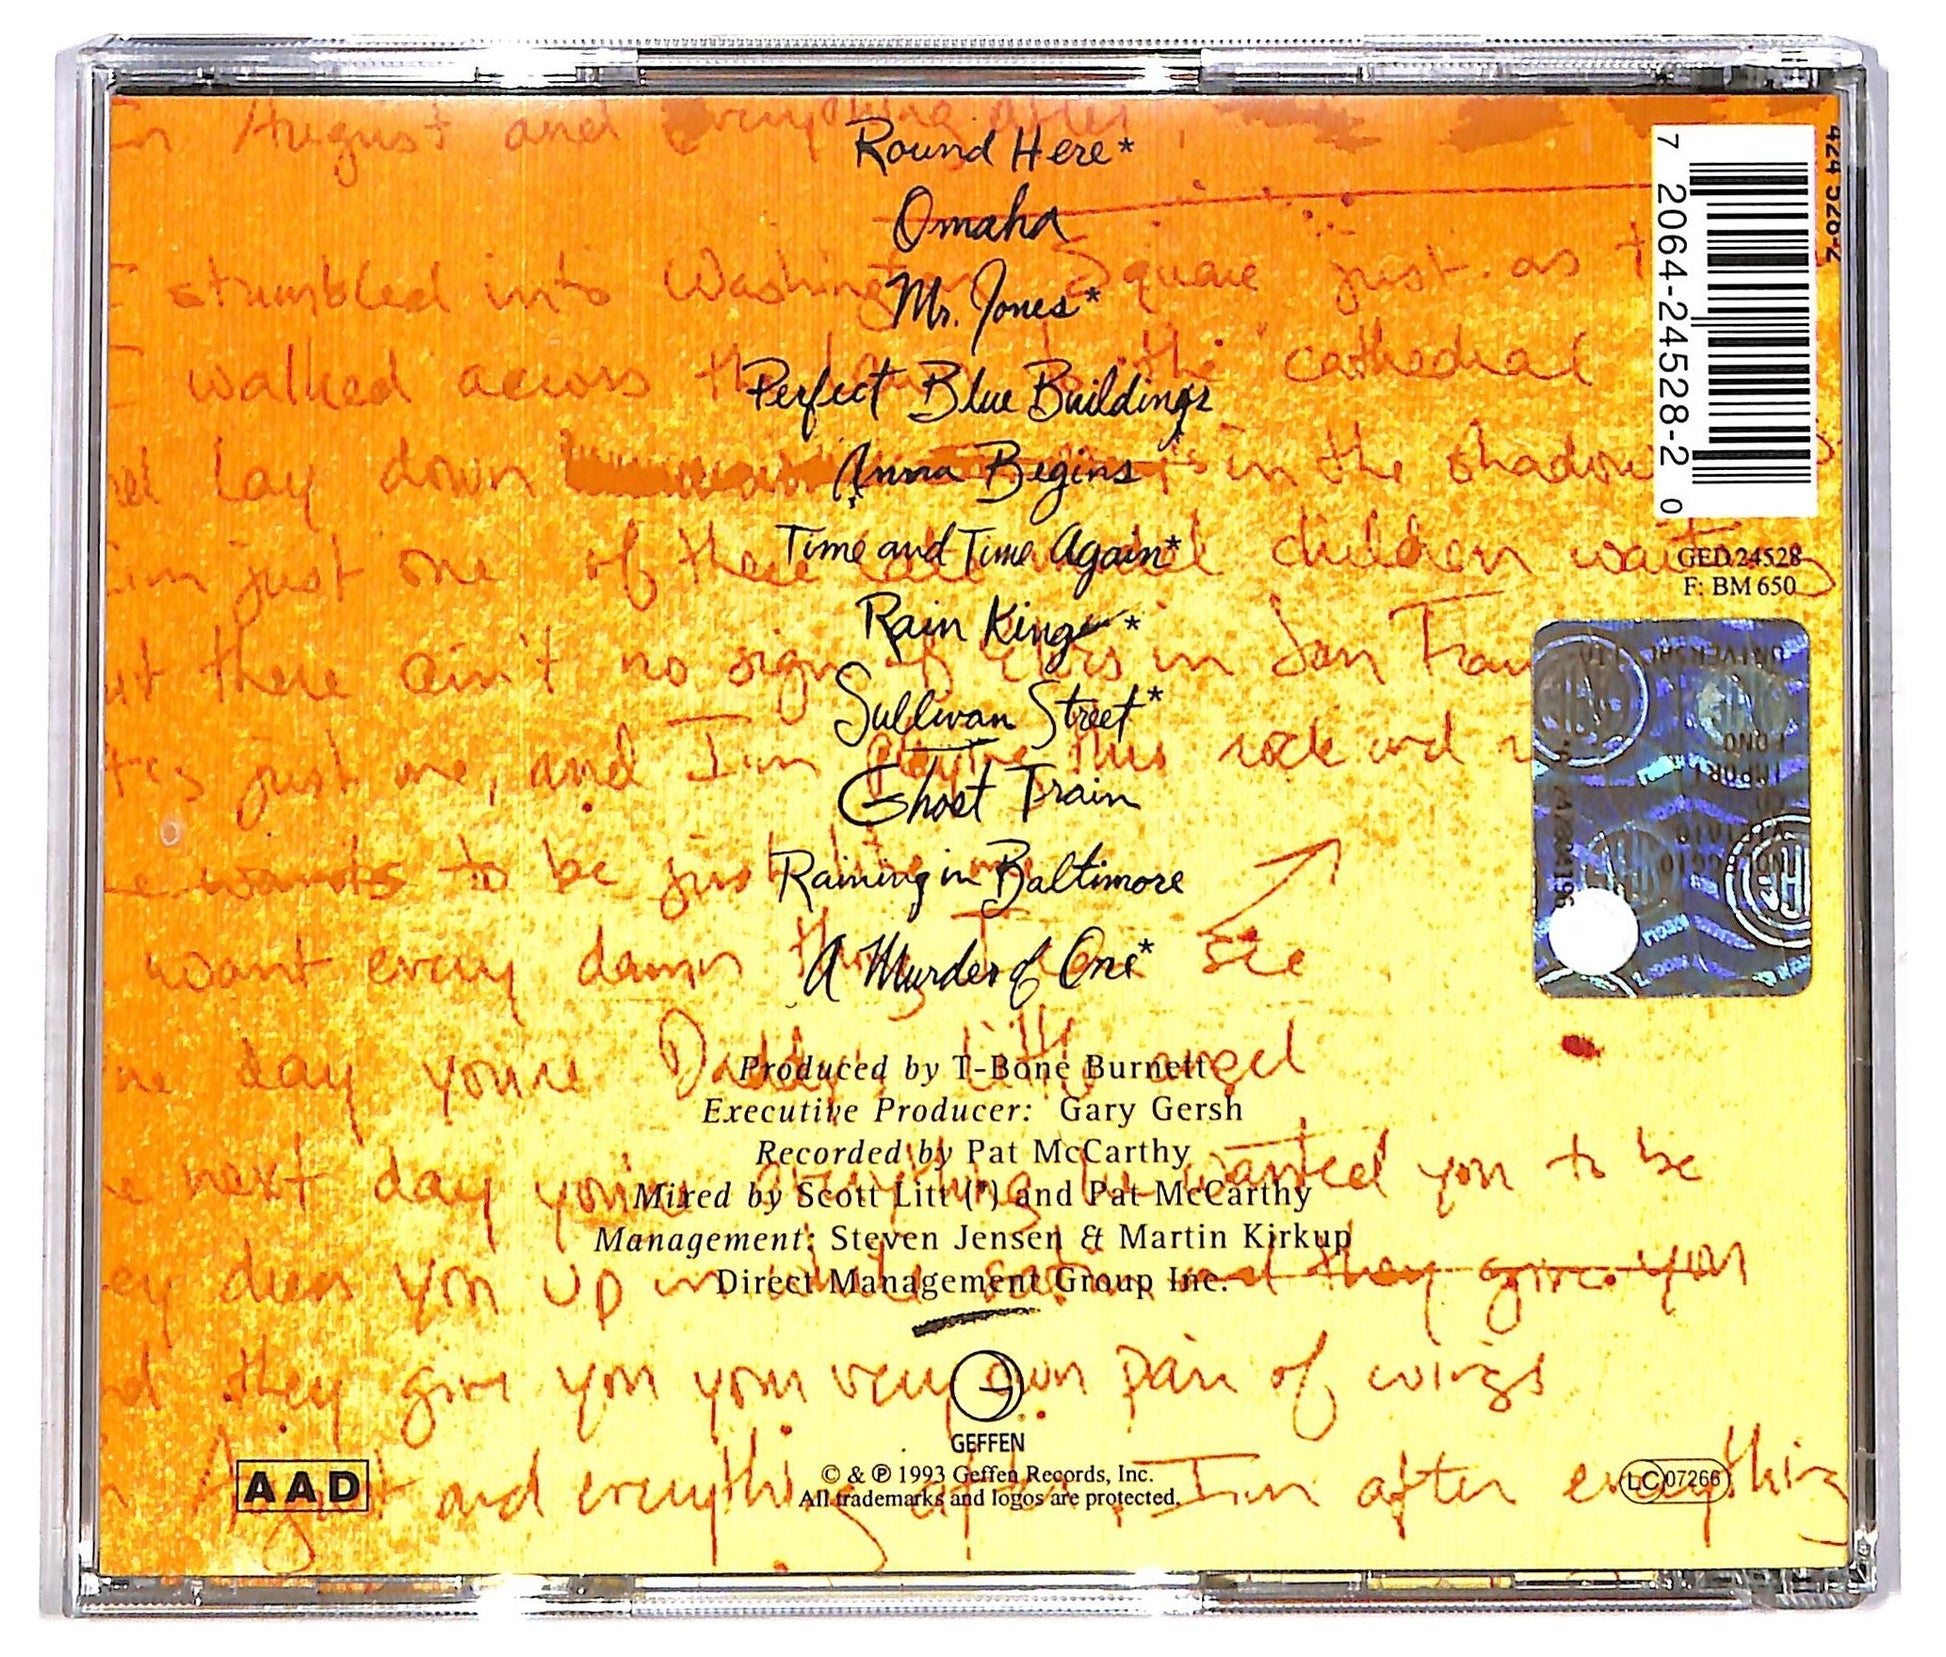 In August and Everything after,
Round Here*
Omaha
I stumbled into Washington Square just as
Mr. Jones*
I walked across the to the cathedral
Perfect Blue Buildings
lay down in the shadow
Anna Begins
I'm just one of these late children waiting
Time and Time Again*
there ain't no sign of in San
Rain King*
Sullivan Street*
just me, and I'm playing this rock and
Ghost Train
wants to be just like me
Raining in Baltimore
want every damn thing I see
A Murder of One*
day you're Daddy's little angel
Produced by T-Bone Burnett
Executive Producer: Gary Gersh
Recorded by Pat McCarthy
next day you're everything he wanted you to be
Mixed by Scott Litt (*) and Pat McCarthy
Management: Steven Jensen & Martin Kirkup
dress you up in white satin and they give you
Direct Management Group Inc.
they give you your very own pair of wings
GEFFEN
August and everything after, I'm after everything
© & ℗ 1993 Geffen Records, Inc.
All trademarks and logos are protected.
AAD
LC 07266
7 2064-24528-2 0
424 528-2
GED 24528
F: BM 650